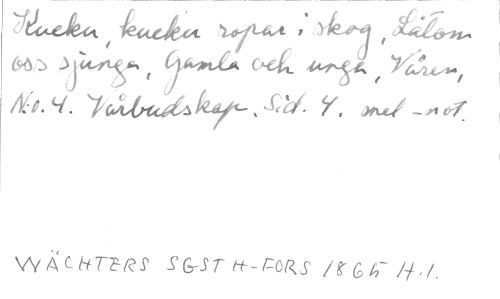 Kucku, kucku ropar i skog, Låtom
oss sjunga, Gamla och unga, Våren,
N:o. 4. Vårbudskap. Sid. 4. mel-not.
WÄCHTERS SGST H-FORS 1865 H.1.